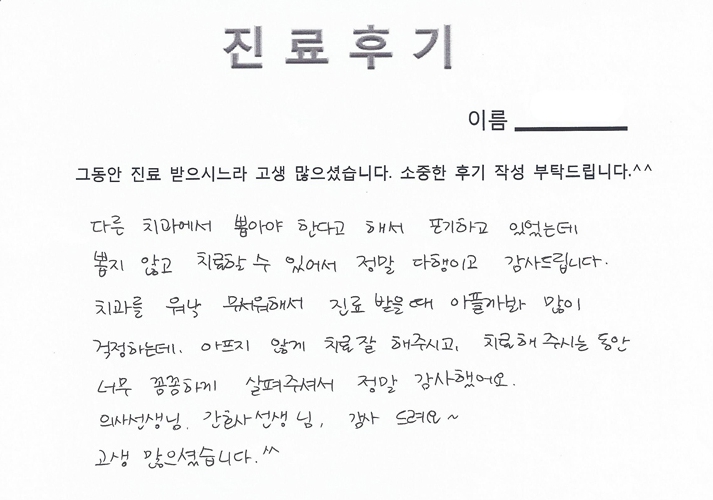 진료후기
이름
그동안 진료 받으시느라 고생 많으셨습니다. 소중한 후기 작성 부탁드립니다.^^
다른 치과에서 뽑아야 한다고 해서 포기하고 있었는데
뽑지 않고 치료할 수 있어서 정말 다행이고 감사드립니다.
치과를 워낙 무서워해서 진료 받을 때 아플까봐 많이
걱정하는데. 아프지 않게 치료 잘 해주시고, 치료해 주시는 동안
너무 꼼꼼하게 살펴주셔서 정말 감사했어요.
의사선생님. 간호사 선생님, 감사 드려요~
고생 많으셨습니다.^^